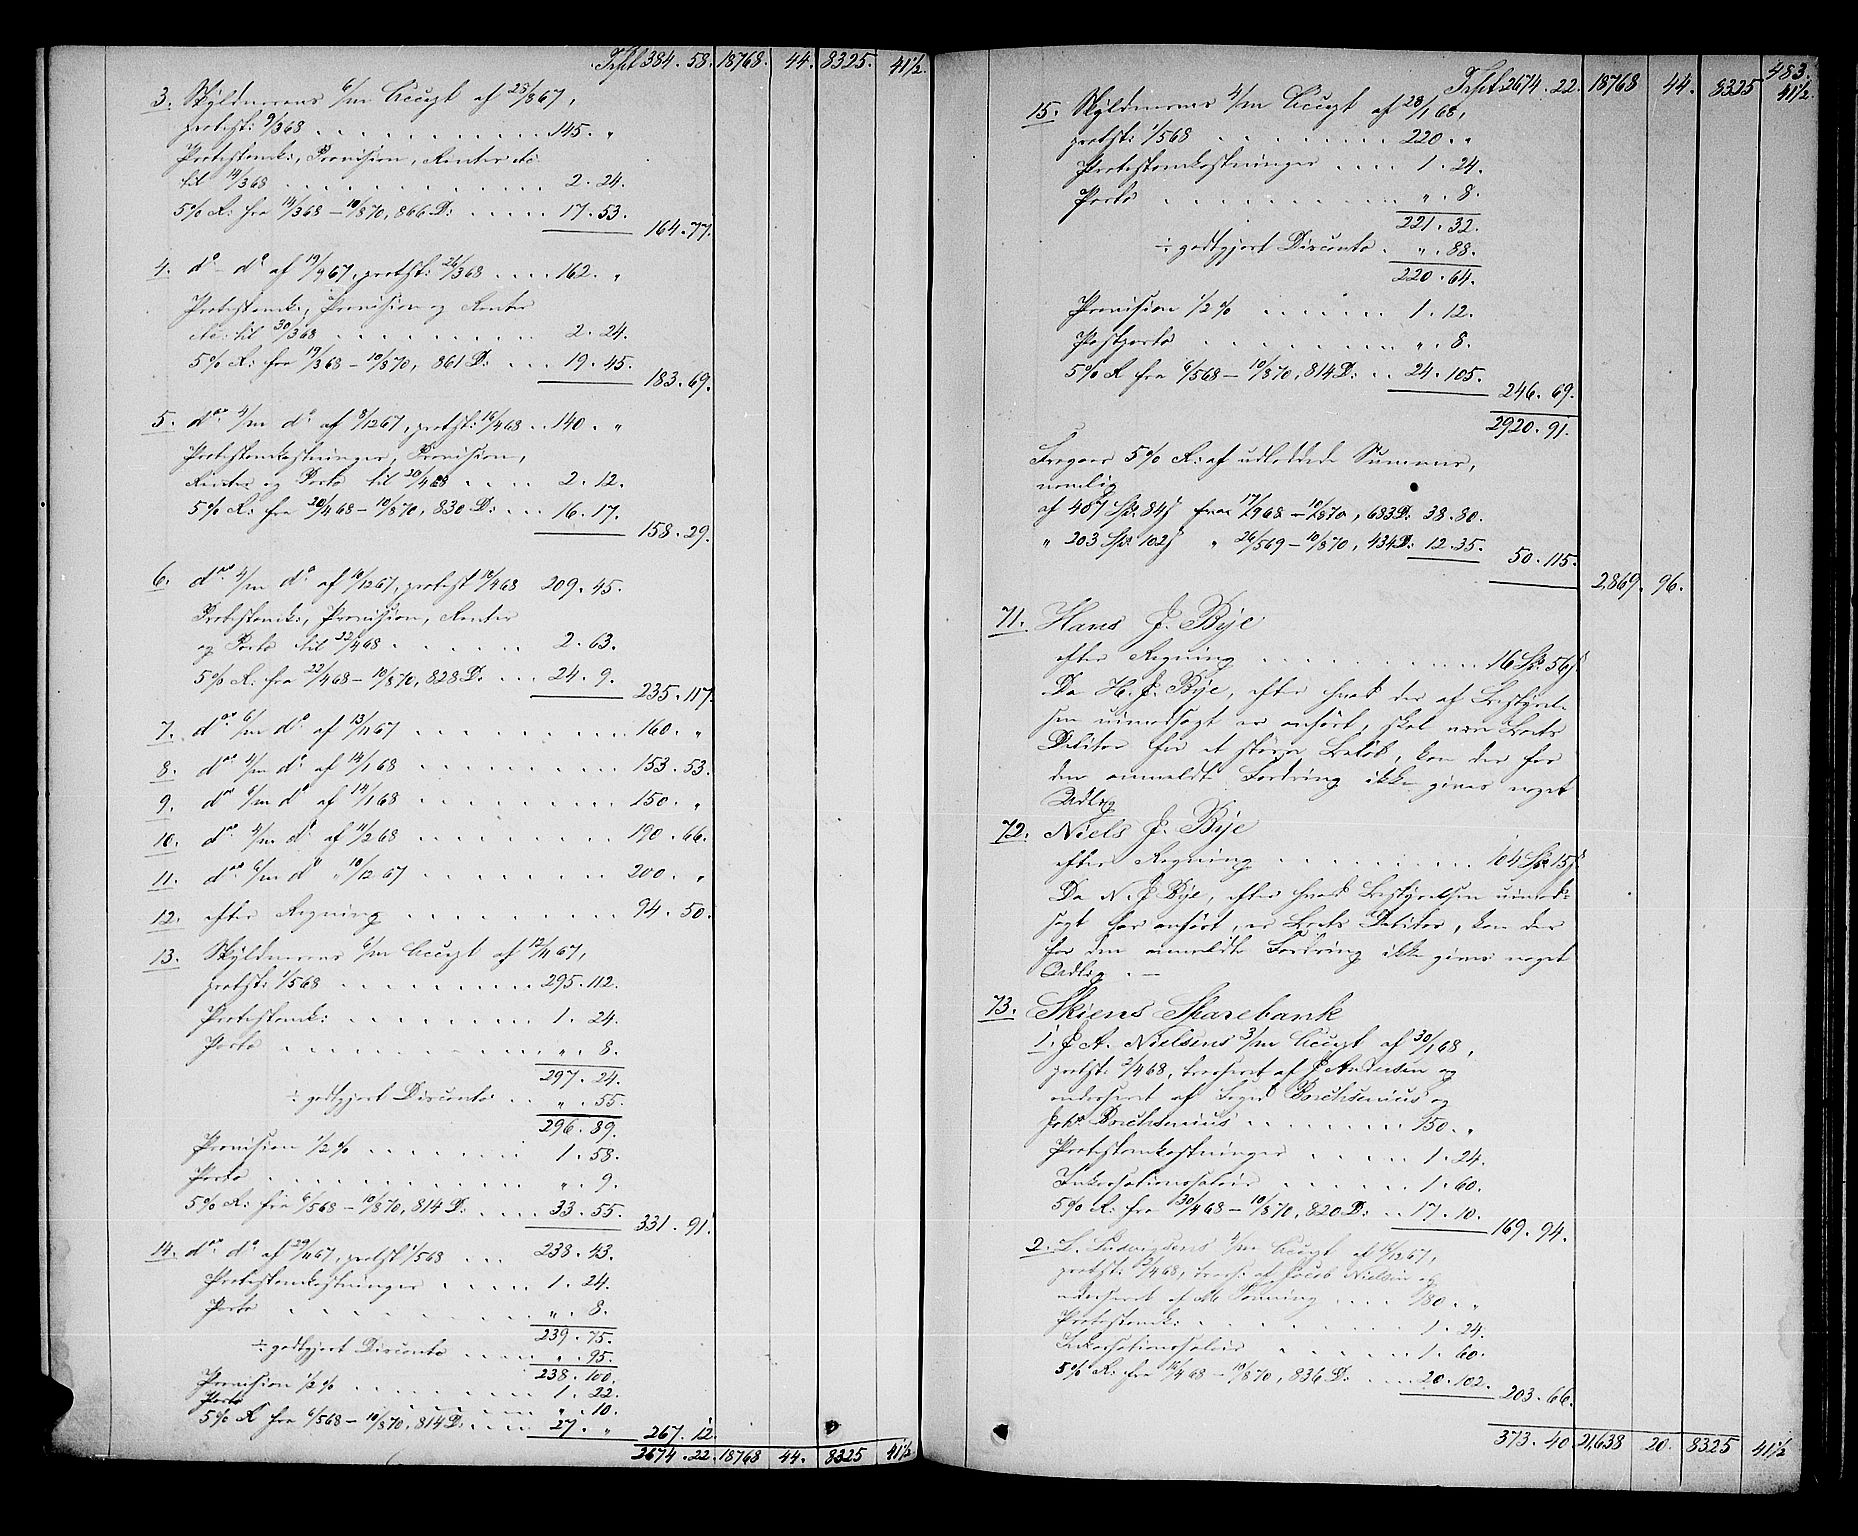 Trspt 384. 58. 18768. 44. 8325. 41½.
3. Skyldnerens 6/m Accept af 25/8 67,
protest: 9/3 68 . . . . 145. „
Protestomk:, Provision, Renter etc
til 14/3 68 . . . . 2. 24.
5% R: fra 14/3 68 – 10/8 70, 866 D: . . . . 17. 53. 164. 77.
4. do – do af 19/9 67, protst: 26/3 68 . . . . 162. „
Protestomk:, Provision og Renter
etc: til 30/3 68 . . . . 2. 24.
5% R: fra 19/3 68 – 10/8 70, 861 D: . . . 19. 45. 183. 69.
5. do 4/m do af 8/12 67, protst: 16/4 68 . . 140. „
Protestomkostninger, Provision,
Renter og Porto til 20/4 68 . . . . 2. 12.
5% R: fra 20/4 68 – 10/8 70, 830 D: . . . 16. 17. 158. 29.
6. do 4/m do af 16/12 67, protest 18/4 68 209. 45.
Protestomk:, Provision, Renter
og Porto til 22/4 68 . . . . 2. 63.
5% R: fra 22/4 68 – 10/8 70, 828 D. . . . 24. 9. 235. 117.
7. do 6/m do af 13/11 67 . . . . 160. „
8. do 4/m do af 14/1 68 . . . . 153. 53.
9. do 6/m do af 14/1 68 . . . . 150. „
10. do 4/m do af 11/2 68 . . . . 190. 66.
11. do 6/m do „ 10/12 67 . . . . 200. „
12. efter Regning . . . . 94. 50.
13. Skyldnerens 6/m Accept af 12/11 67,
protst: 1/5 68 . . . . 295. 112.
Protestomk: . . . . 1. 24.
Porto . . . . „. 8.
297. 24.
÷ godtgjort Disconto . . „. 55.
296. 89.
Provision ½% . . . . 1. 58.
Porto . . . . „. 9.
5% R: fra 6/5 68 – 10/8 70, 814 D: . . . . 33. 55. 331. 91.
14. do do af 29/11 67, protst 1/5 68 . . . 238. 43.
Protestomkostninger . . . . 1. 24.
Porto . . . . „. 8.
239. 75.
÷ godtgjort Disconto . . . . „. 95.
238. 100.
Provision ½% . . . . 1. 22.
Porto . . . . „. 10.
5% R fra 6/5 68 – 10/8 70, 814 D: . . . . 27. „ 267. 12.
2674. 22. 18768 44. 8325 41½
483.
Trspt 2674. 22. 18768 44. 8325 41½.
15. Skyldnerens 4/m Accept af 28/1 68,
protst: 1/5 68 . . . . 220. „
Protestomkostninger . . . . 1. 24.
Porto . . . . „. 8.
221. 32.
÷ godtgjort Disconto . „. 88.
220. 64.
Provision ½% . . . . 1. 12.
Postporto . . . . „. 8.
5% R fra 6/5 68 – 10/8 70, 814 D: . . 24. 105. 246. 69.
2920. 91.
Fragaar 5% R: af udlodded Summer,
nemlig
af 407 Spd. 84 s fra 17/9 68 – 10/8 70, 683 D: 38. 80.
„ 203 Spd. 102 s „ 26/5 69 – 10/8 70, 434 D: 12. 35. 50. 115.
2,869. 96.
71. Hans J. Bye
efter Regning . . . . 16 Spd. 56 s
Da H. J. Bye, efter hvad der af Bestyrel-
sen uimodsagt er anført, skal være Boets
Debitor for et større Beløb, kan der for
den anmeldte Fordring ikke gives noget
Udlæg
72. Niels J. Bye
efter Regning . . . . 104 Spd. 15 s
Da N. J. Bye, efter hvad Bestyrelsen uimod-
sagt har anført, er Boets Debitor, kan der
for den anmeldte Fordring ikke gives noget
Udlæg. —
73. Skiens Sparebank
1. J. A. Nielsens 3/m Accept af 30/1 68,
protst: 2/4 68, trasseret af J Andersen og
endosseret af Sigrd Borchsenius og
Johs Borchsenius . . . . 150. „
Protestomkostninger . . . . 1. 24.
Inkassationssalair . . . . 1. 60.
5% R. fra 30/4 68 – 10/8 70, 820 D: . . 17. 10. 169. 94.
2. L. Ludvigsens 4/m Accept af 11/12 67,
protst: /4 68, trass: af Jacob Nielsen og
endosseret af M Tønning . . . . 180. „
Protestomk: . . . . 1. 24.
Inkassationssalair . . . . 1. 60.
5% R: fra 14/4 68 – 10/8 70, 836 D: . . . . 20. 102. 203. 66.
373. 40. 21,638 20. 8325 41½